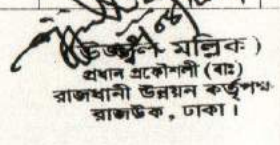 উজ্জ্বল মল্লিক )
প্রধান প্রকৌশলী (বাঃ)
রাজধানী উন্নয়ন কর্তৃপক্ষ
রাজউক, ঢাকা।